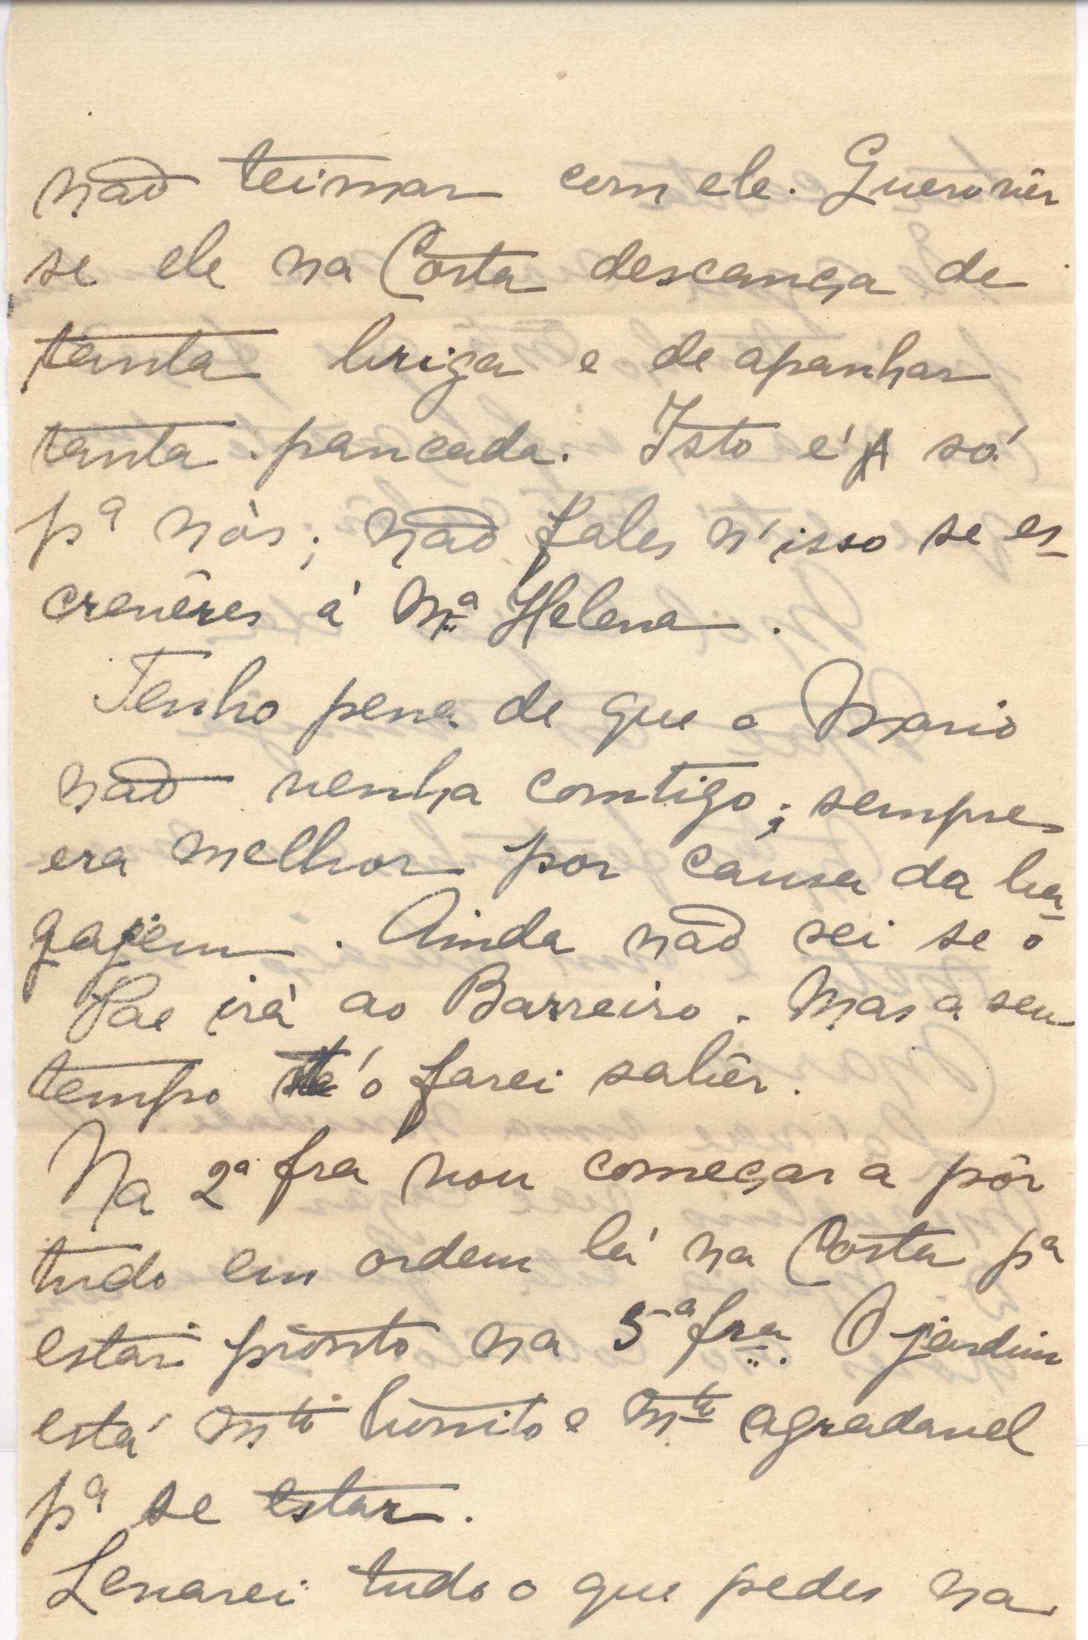 não teimar com ele. Quero vêr
se ele na Costa descança de
tanta briga e de apanhar
tanta pancada. Isto é só
pª nós; não fales n'isso se es-
crevêres á Mª Helena.
Tenho pena de que o Mario
não venha comtigo; sempre
era melhor por causa da ba-
gajem. Ainda não sei se o
Pae irá ao Barreiro. Mas a seu
tempo t'o farei sabêr.
Na 2ª fra vou começar a pôr
tudo em ordem lá na Costa pª
estar pronto na 5ª fra. O jardim
está mto bonito e mto agradavel
pª se estar.
Levarei tudo o que pedes na